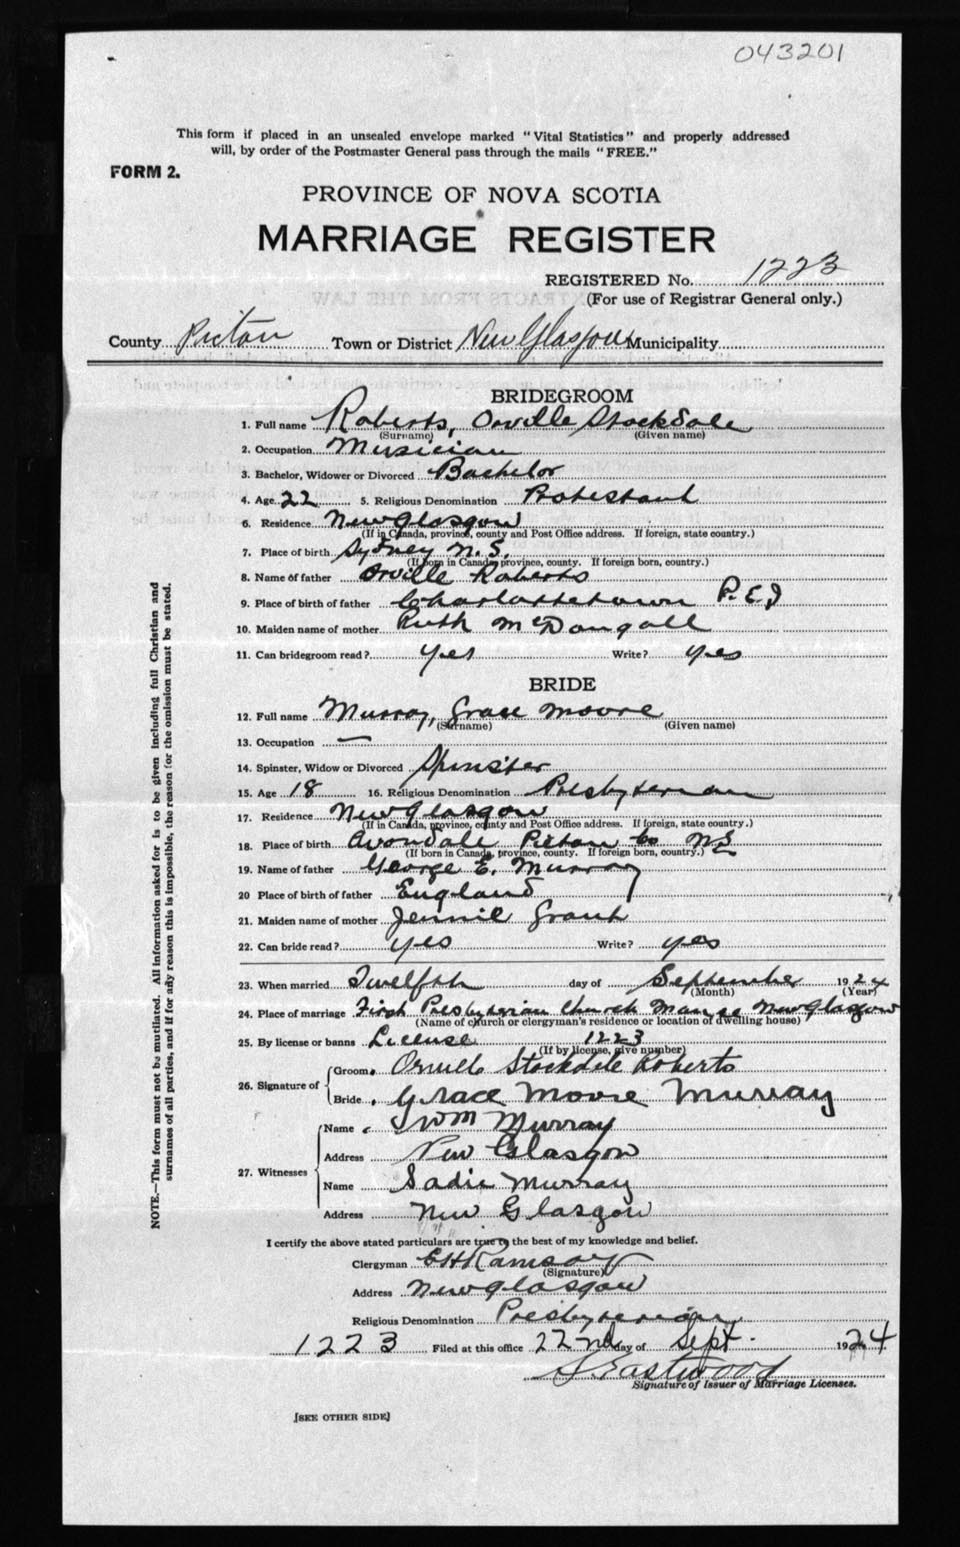 043201
This form if placed in an unsealed envelope marked "Vital Statistics" and properly addressed
will, by order of the Postmaster General pass through the mails "FREE."
FORM 2.
PROVINCE OF NOVA SCOTIA
MARRIAGE REGISTER
REGISTERED No. 1223
(For use of Registrar General only.)
County Pictou Town or District New Glasgow Municipality
BRIDEGROOM
1. Full name Roberts, Orville Stockdale
(Surname) (Given name)
2. Occupation Musician
3. Bachelor, Widower or Divorced Bachelor
4. Age 22 5. Religious Denomination Protestant
6. Residence New Glasgow
(If in Canada, province, county and Post Office address. If foreign, state country.)
7. Place of birth Sydney N.S.
(If born in Canada, province, county. If foreign born, country.)
8. Name of father Orville Roberts
9. Place of birth of father Charlottetown P.E.I
10. Maiden name of mother Ruth McDougall
11. Can bridegroom read? yes Write? yes
BRIDE
12. Full name Murray, Grace Moore
(Surname) (Given name)
13. Occupation —
14. Spinster, Widow or Divorced Spinster
15. Age 18 16. Religious Denomination Presbyterian
17. Residence New Glasgow
(If in Canada, province, county and Post Office address. If foreign, state country.)
18. Place of birth Avondale Pictou Co N.S
(If born in Canada, province, county. If foreign born, country.)
19. Name of father George E. Murray
20 Place of birth of father England
21. Maiden name of mother Jennie Grant
22. Can bride read? yes Write? yes
23. When married Twelfth day of September 1924
(Month) (Year)
24. Place of marriage First Presbyterian Church Manse New Glasgow
(Name of church or clergyman's residence or location of dwelling house)
25. By license or banns License 1223
(If by license, give number)
26. Signature of Groom Orville Stockdale Roberts
Bride Grace Moore Murray
27. Witnesses Name Murray
Address New Glasgow
Name Sadie Murray
Address New Glasgow
I certify the above stated particulars are true to the best of my knowledge and belief.
Clergyman E H Ramsay
(Signature)
Address New Glasgow
Religious Denomination Presbyterian
1223 Filed at this office 22nd day of Sept. 1924
S. Eastwood
Signature of Issuer of Marriage Licenses.
[SEE OTHER SIDE]
NOTE.—This form must not be mutilated. All information asked for is to be given including full Christian and
surnames of all parties, and if for any reason this is impossible, the reason for the omission must be stated.